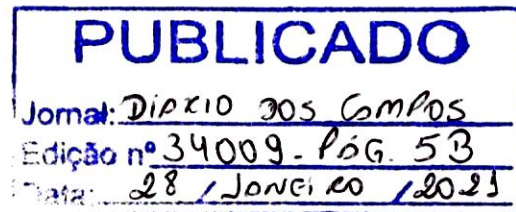 PUBLICADO
Jornal: DIÁRIO DOS CAMPOS
Edição nº 34009 - PÁG. 5B
Data: 28 / JANEIRO / 2021